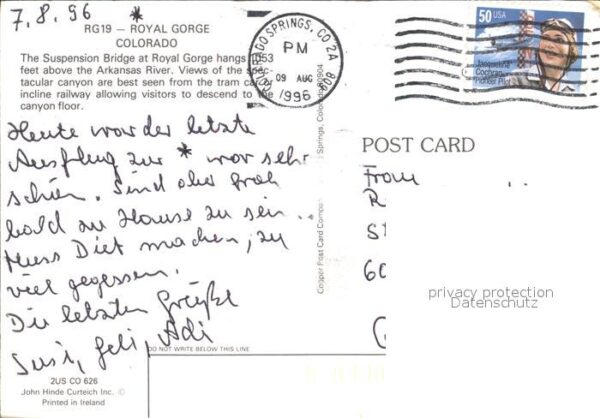 7.8.96 *
RG19 – ROYAL GORGE
COLORADO
The Suspension Bridge at Royal Gorge hangs 1053
feet above the Arkansas River. Views of the spec-
tacular canyon are best seen from the tram car or
incline railway allowing visitors to descend to the
canyon floor.
Heute war der letzte
Ausflug zur * war sehr
schön. Sind aber froh
bald zu Hause zu sein..
Muss Diet machen, zu
viel gegessen.
Die letzten Grüße
Susi, Geli, Adi
DO NOT WRITE BELOW THIS LINE
2US CO 626
John Hinde Curteich Inc. ©
Printed in Ireland
Springs, Colorado 80904
Copper Post Card Company
SPRINGS, CO
PM
09 AUG
1996
809
50 USA
Jacqueline
Cochran
Pioneer Pilot
POST CARD
From
R
S
60
privacy protection
Datenschutz